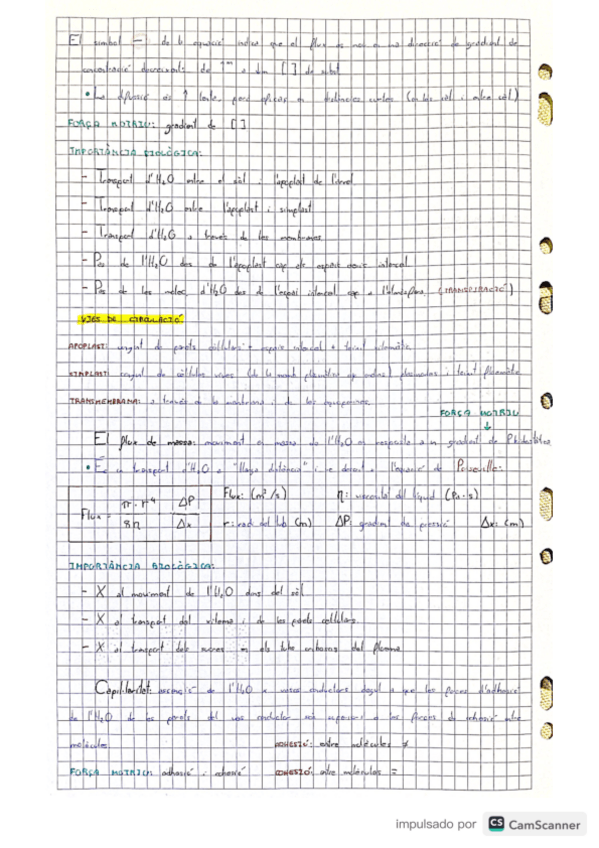 El símbol — de la equació indica que el flux es mou en una direcció de gradient de
concentració decreixent: de + a - [ ] de solut
• La difusió és ↑ lenta, però eficaç en distàncies curtes
FORÇA MOTRIU: gradient de [ ]
IMPORTÀNCIA BIOLÒGICA:
- Transport d'H₂O entre el sòl i l'apoplast de l'arrel
- Transport d'H₂O entre l'apoplast i simplast
- Transport d'H₂O a través de les membranes
- Pas de l'H₂O des de l'apoplast cap als espais
- Pas de les molec. d'H₂O des de l'espai cap a l'atmosfera (TRANSPIRACIÓ)
VIES DE CIRCULACIÓ
APOPLAST: conjunt de parets cel·lulars + espais + 
SIMPLAST: conjunt de cèl·lules vives
TRANSMEMBRANA: a través de la membrana i de les aquaporines
FORÇA MOTRIU
↓
El flux de massa: moviment en massa de l'H₂O en resposta a un gradient de P hidrostàtica
• És un transport d'H₂O a "llarga distància" i ve donat a l'equació de Poiseuille:
Flux = π · r⁴ / 8η ΔP / Δx
Flux: (m³/s) η: viscositat del líquid (Pa · s)
r: radi del tub (m) ΔP: gradient de pressió Δx: (m)
IMPORTÀNCIA BIOLÒGICA:
- X al moviment de l'H₂O dins del sòl
- X al transport del xilema i de les parets cel·lulars
- X al transport dels sucres en els tubs cribrosos del floema
Capil·laritat: ascensió de l'H₂O a vasos conductors degut a que les forces d'adhesió
de l'H₂O de les parets del vas conductor són superiors a les forces de cohesió entre
molècules ADHESIÓ: entre molècules ≠
FORÇA MOTRIU: adhesió i cohesió COHESIÓ: entre molècules =
impulsado por CS CamScanner